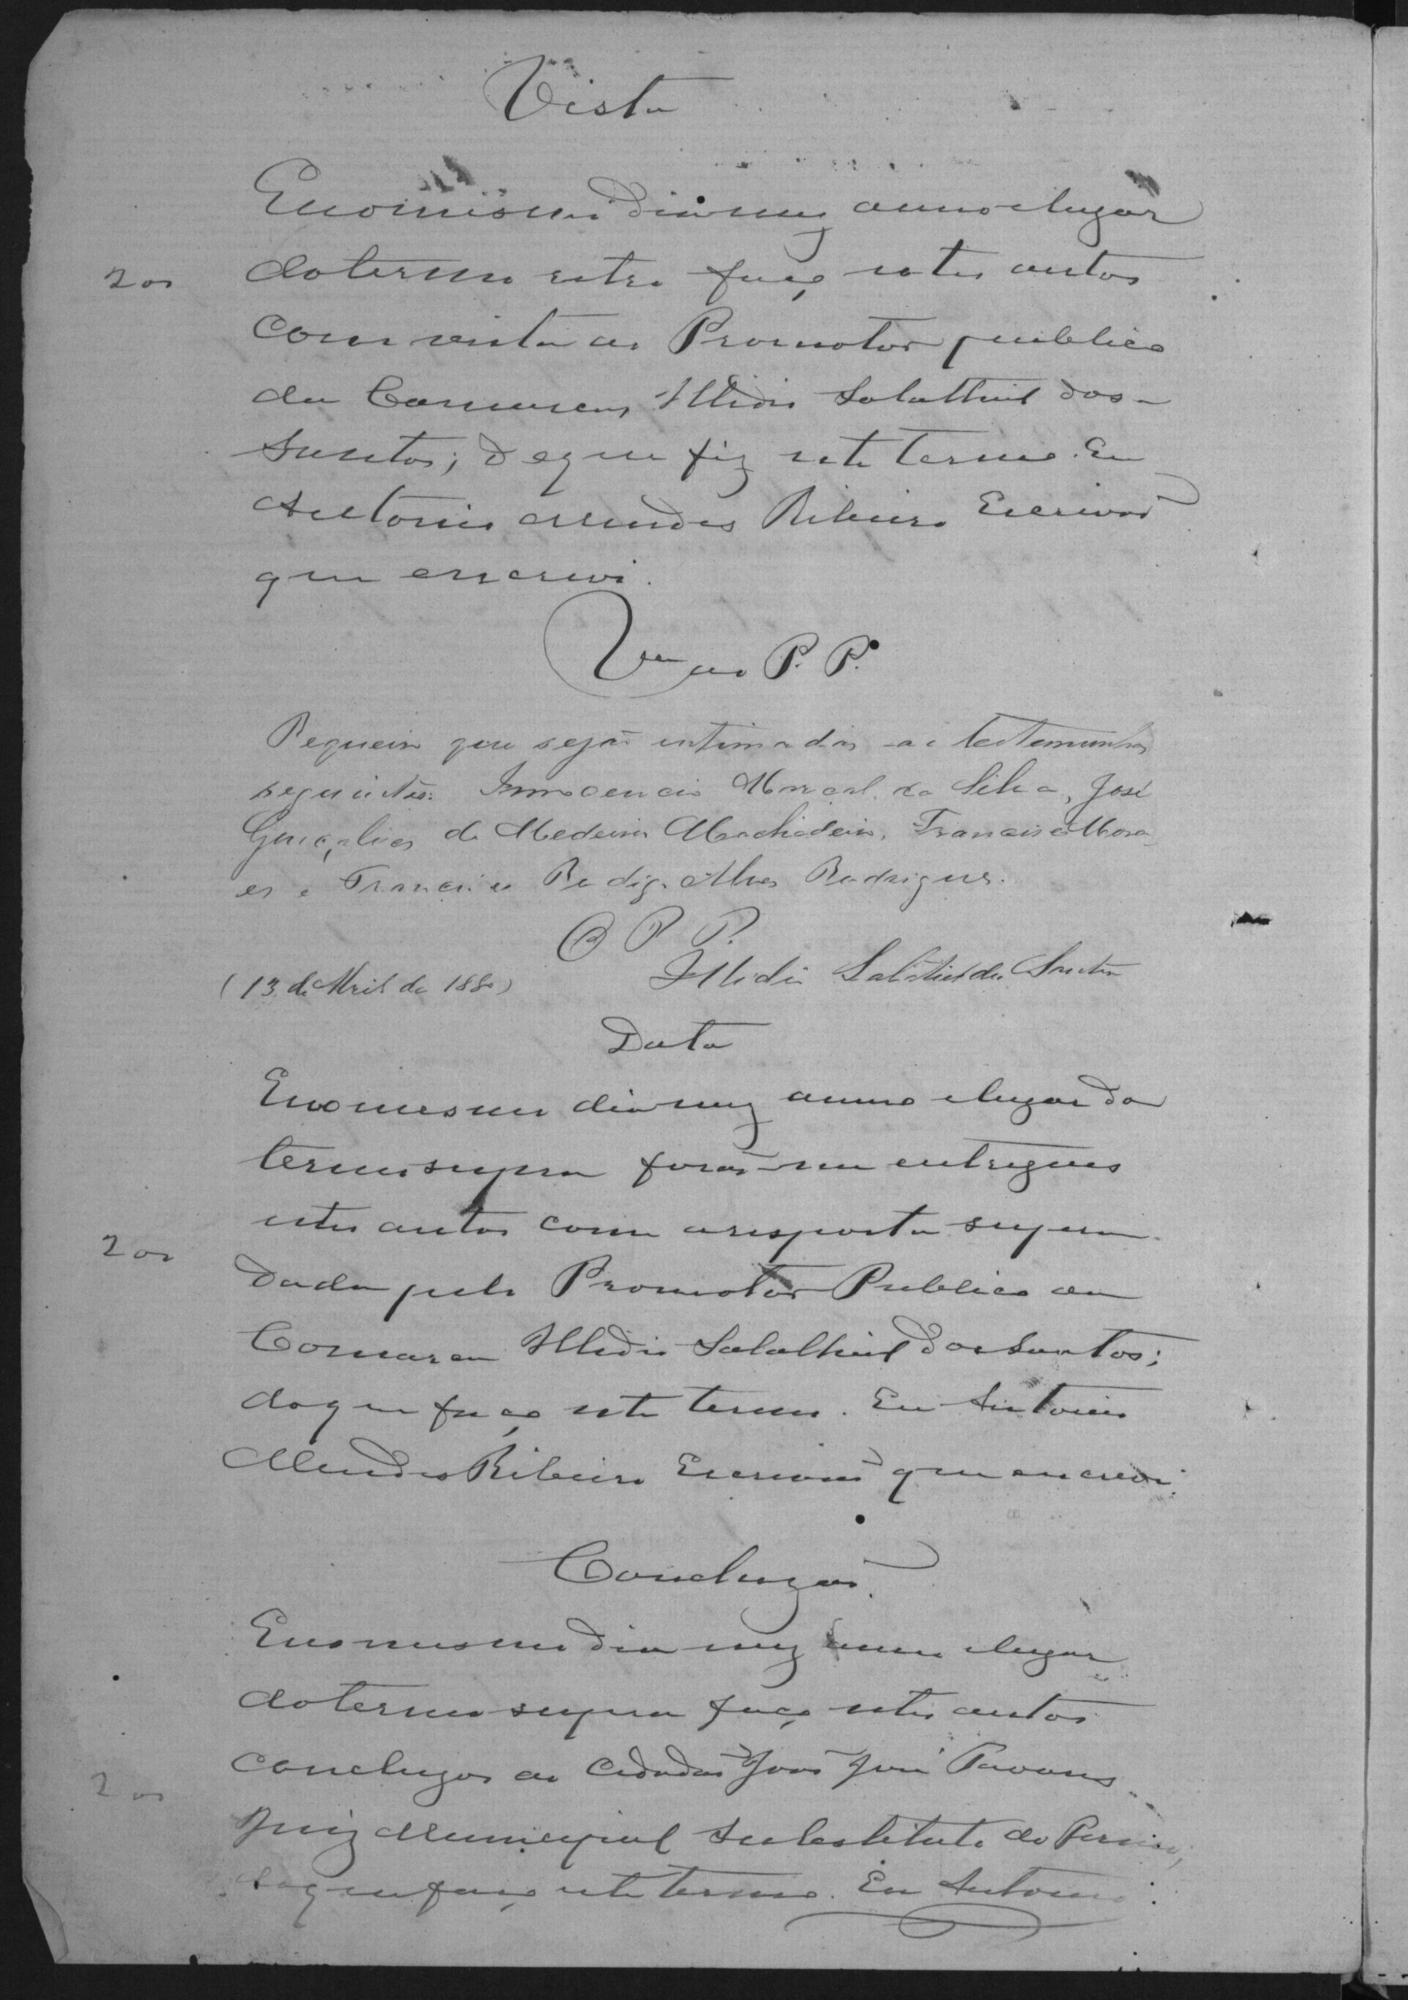 Vista
E no mesmo dia mez anno e lugar
200
do termo retro faço estes autos
com vista ao Promotor publico
da Comarca, Illidio Salathiel dos
Santos; de que fiz este termo. Eu
Antonio Mendes Ribeiro Escrivaõ
que escrevi.
Vta ao P. P.
Requeiro que sejaõ intimadas as testemunhas
seguintes: Innocencio Marcal da Silva, José
Gonçalves de Medeiros, Francisco Mora
es e Francisco Alves Rodrigues.
O P. P.
Illidio Salathiel dos Santos
(13 de Abril de 1880)
Data
E no mesmo dia mez anno e lugar do
termo supra foraõ-me entregues
estes autos com a resposta supra
200
dada pelo Promotor Publico da
Comarca Illidio Salathiel dos Santos;
do que faço este termo. Eu Antonio
Mendes Ribeiro Escrivaõ que escrevi.
Concluzaõ.
E no mesmo dia mez anno e lugar
do termo supra faço estes autos
concluzos ao Cidadaõ Joaõ José
200
Juiz Municipal Substituto do Termo,
do que faço este termo. Eu Antonio